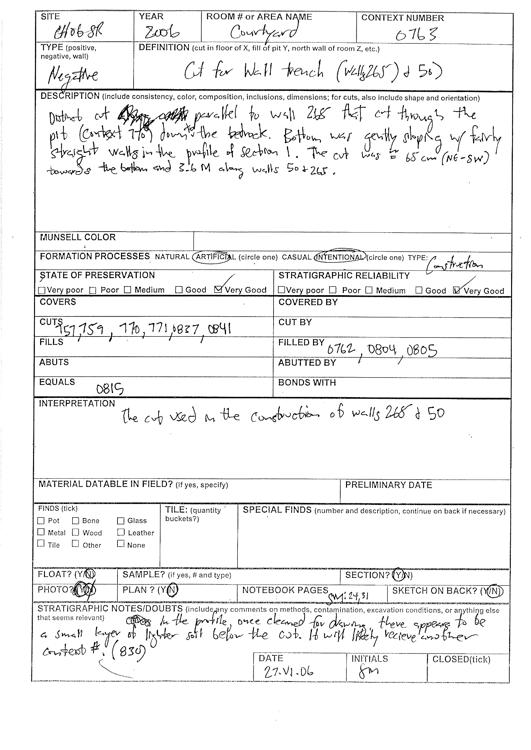 SITE YEAR ROOM # or AREA NAME CONTEXT NUMBER
CH06SR 2006 Courtyard 0763
TYPE (positive, negative, wall) DEFINITION (cut in floor of X, fill of pit Y, north wall of room Z, etc.)
Negative Cut for Wall trench (walls 265) & 50)
DESCRIPTION (include consistency, color, composition, inclusions, dimensions; for cuts, also include shape and orientation)
Distinct cut parallel to wall 265 that cut through the
pit (context 770) down the bedrock. Bottom was gently sloping w/ fairly
straight walls in the profile of section 1. The cut was ≈ 65 cm (NE-SW)
towards the bottom and 3.6 M along walls 50 & 265.
MUNSELL COLOR
FORMATION PROCESSES NATURAL ARTIFICIAL (circle one) CASUAL INTENTIONAL (circle one) TYPE: Construction
STATE OF PRESERVATION STRATIGRAPHIC RELIABILITY
Very poor Poor Medium Good Very Good Very poor Poor Medium Good Very Good
COVERS COVERED BY
CUTS 757, 759, 770, 771, 0837, 0841 CUT BY
FILLS FILLED BY 0762, 0804, 0805
ABUTS ABUTTED BY
EQUALS 0815 BONDS WITH
INTERPRETATION
The cut used in the construction of walls 265 & 50
MATERIAL DATABLE IN FIELD? (if yes, specify) PRELIMINARY DATE
FINDS (tick) TILE: (quantity buckets?) SPECIAL FINDS (number and description, continue on back if necessary)
Pot Bone Glass
Metal Wood Leather
Tile Other None
FLOAT? (Y/N) SAMPLE? (if yes, # and type) SECTION? (Y/N)
PHOTO? (Y/N) PLAN? (Y/N) NOTEBOOK PAGES SM: 24, 31 SKETCH ON BACK? (Y/N)
STRATIGRAPHIC NOTES/DOUBTS (include any comments on methods, contamination, excavation conditions, or anything else
that seems relevant) In the profile, once cleaned for drawing, there appears to be
a small layer of lighter soil below the cut. It will likely recieve another
context #. (830)
DATE INITIALS CLOSED(tick)
27.VI.06 SM